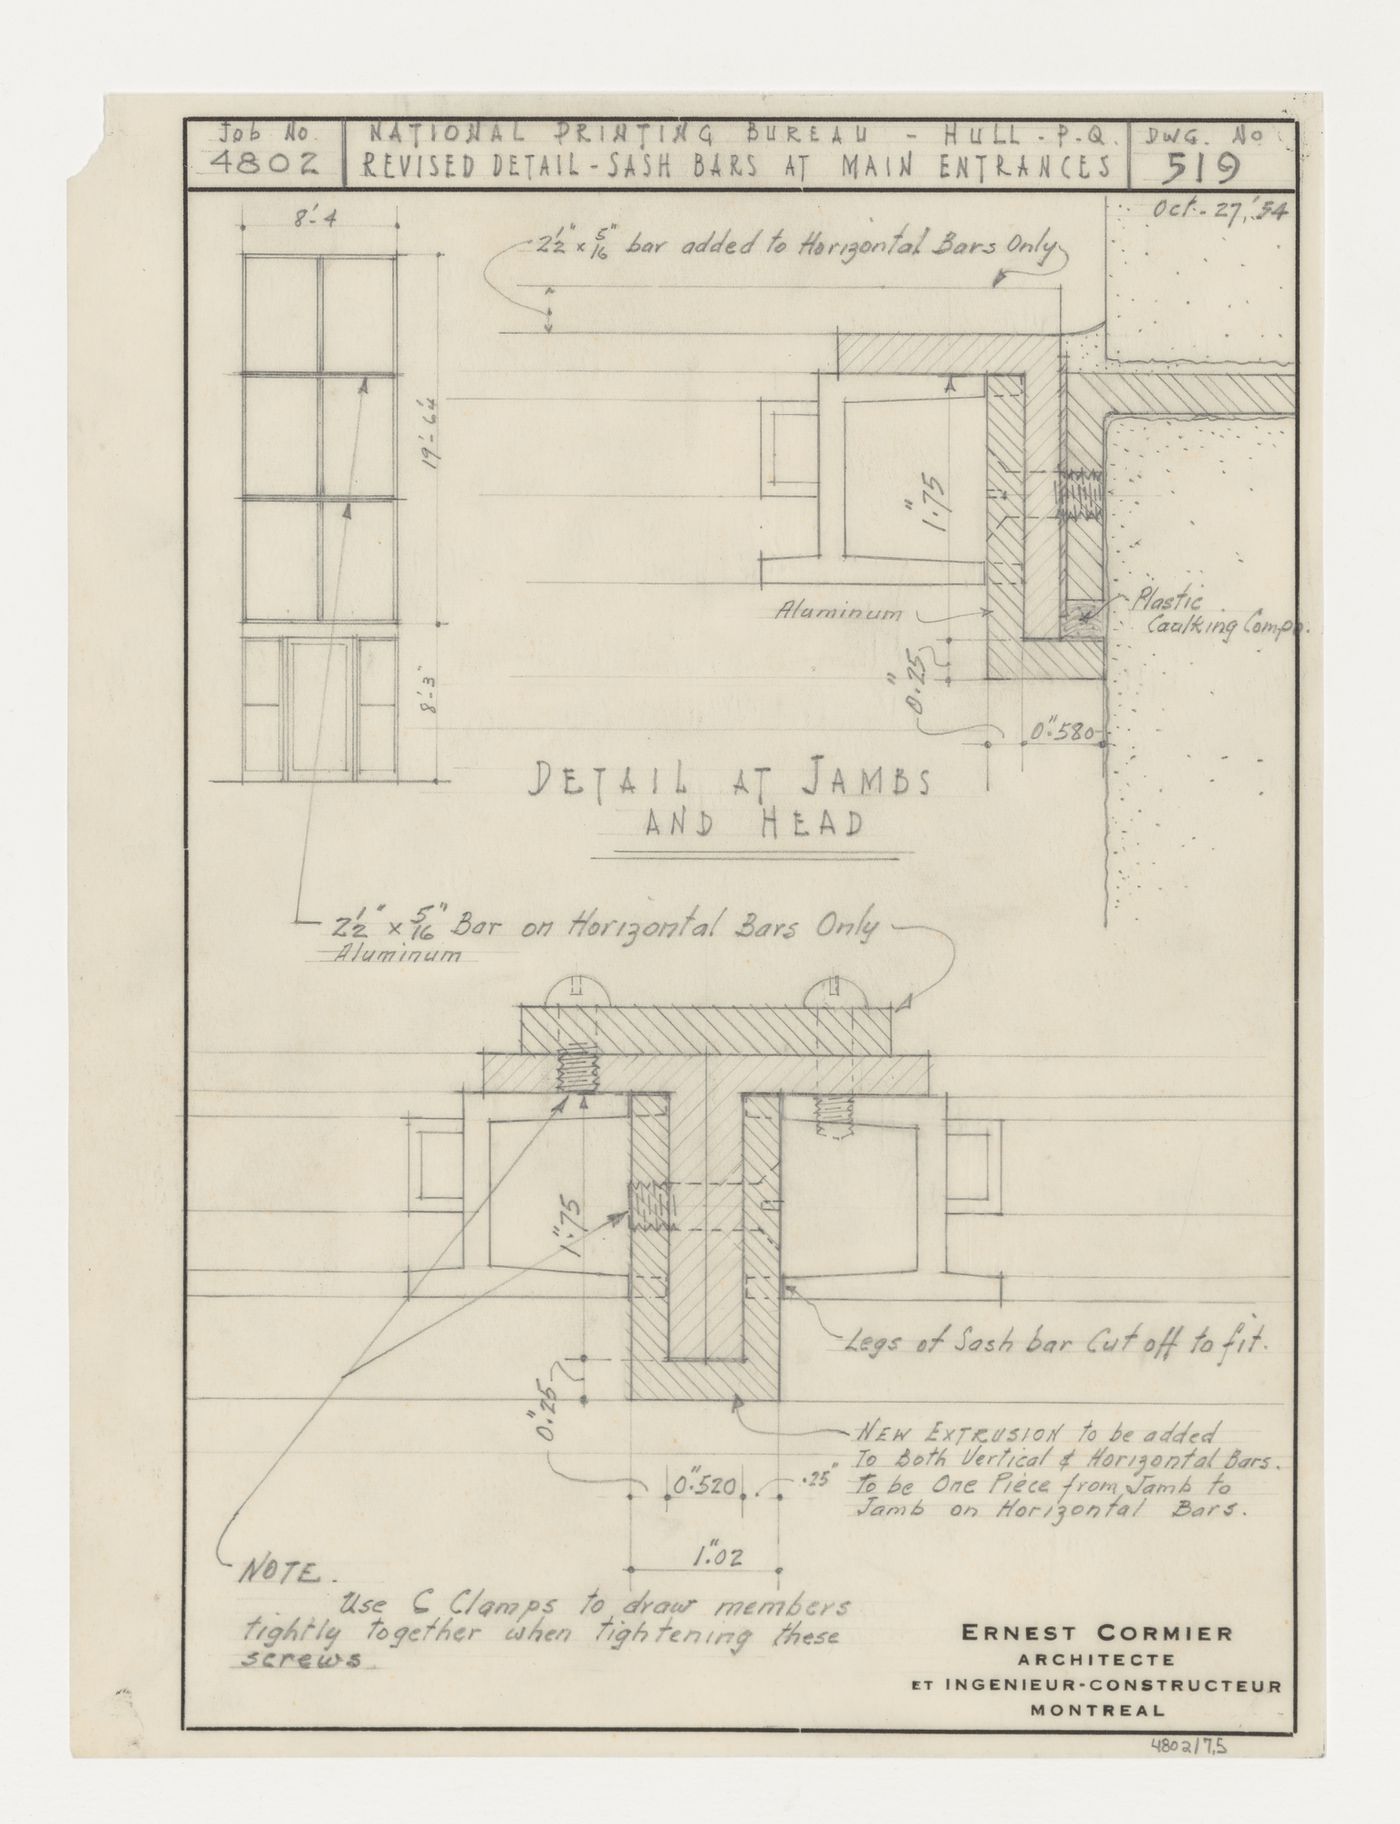 Job No.
4802
NATIONAL PRINTING BUREAU - HULL - P.Q.
REVISED DETAIL - SASH BARS AT MAIN ENTRANCES
DWG. No
519
Oct - 27, '54
8'-4
2½" x 5/16" bar added to Horizontal Bars Only
19'-6¼
1".75
Aluminum
Plastic
Caulking Compo.
0".25
8'-3"
0".580
DETAIL AT JAMBS
AND HEAD
2½" x 5/16" Bar on Horizontal Bars Only
Aluminum
1".75
Legs of Sash bar Cut off to fit.
0".25
NEW EXTRUSION to be added
To Both Vertical & Horizontal Bars.
To be One Piece from Jamb to
Jamb on Horizontal Bars.
0".520
.25"
1".02
NOTE.
Use C Clamps to draw members
tightly together when tightening these
screws
ERNEST CORMIER
ARCHITECTE
ET INGENIEUR-CONSTRUCTEUR
MONTREAL
4802/7,5